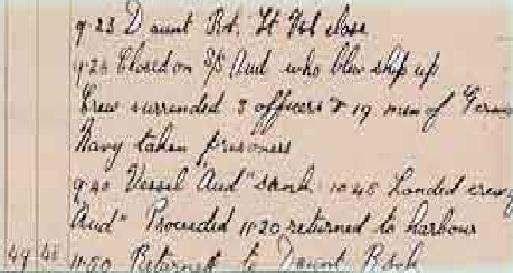 9.23 Daunt Rk. Lt Vsl close
9.26 Closed on S/S Aud who blew ship up
Crew surrendered 3 officers & 19 men of
Navy taken prisoners
9.40 Vessel "Aud" sank. 10.45 Landed crew
Aud" Proceeded 11.20 returned to harbour
Returned to Daunt Rock